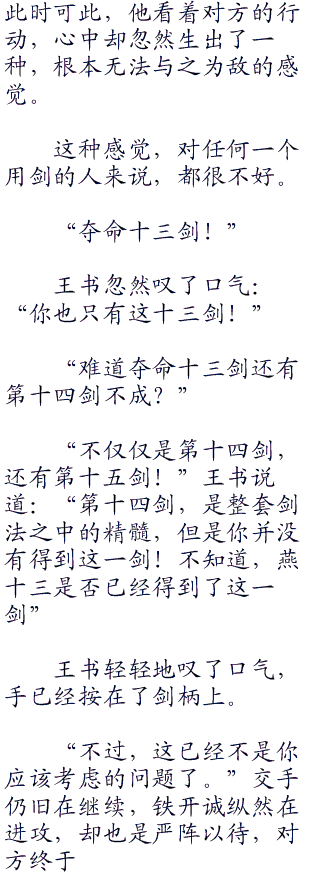 此时可此，他看着对方的行
动，心中却忽然生出了一
种，根本无法与之为敌的感
觉。
这种感觉，对任何一个
用剑的人来说，都很不好。
“夺命十三剑！”
王书忽然叹了口气：
“你也只有这十三剑！”
“难道夺命十三剑还有
第十四剑不成？”
“不仅仅是第十四剑，
还有第十五剑！”王书说
道：“第十四剑，是整套剑
法之中的精髓，但是你并没
有得到这一剑！不知道，燕
十三是否已经得到了这一
剑”
王书轻轻地叹了口气，
手已经按在了剑柄上。
“不过，这已经不是你
应该考虑的问题了。”交手
仍旧在继续，铁开诚纵然在
进攻，却也是严阵以待，对
方终于